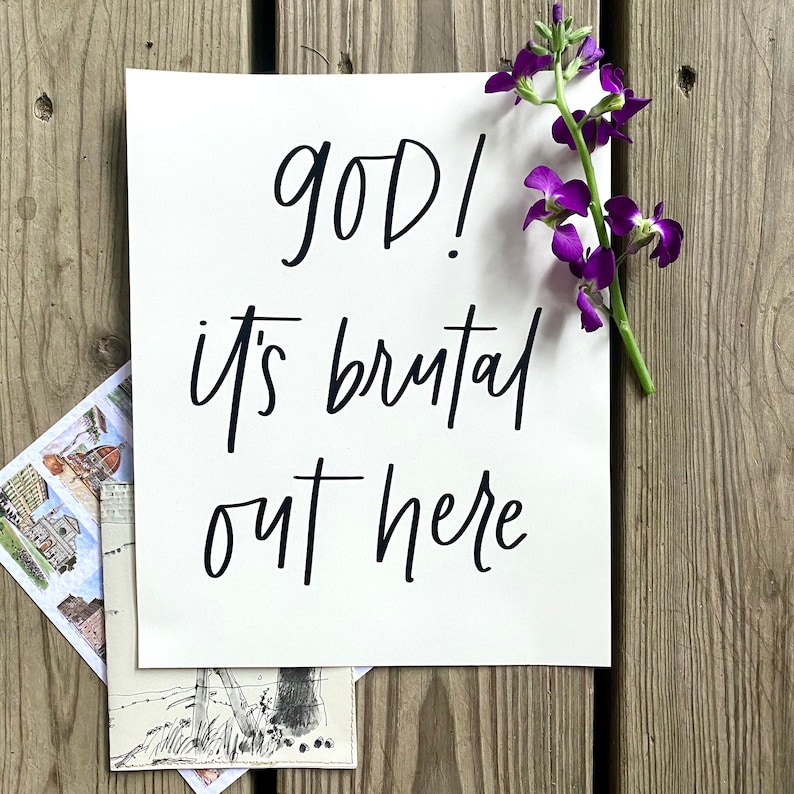 god!
it's brutal
out here